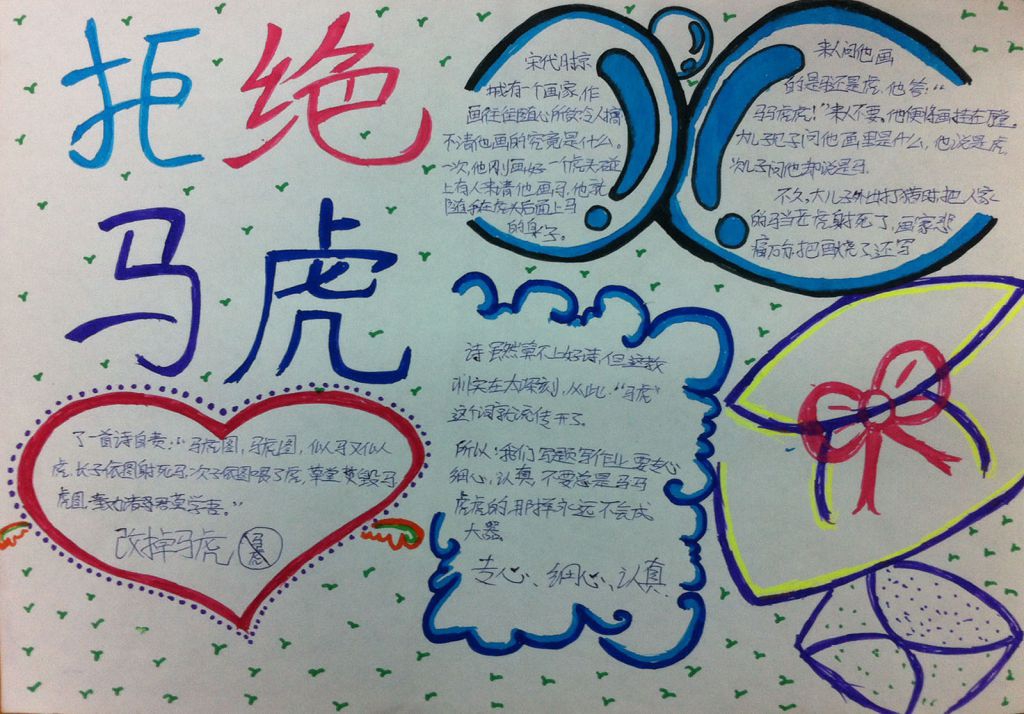 拒绝
马虎
宋代时京
城有一个画家,作
画往往随心所欲,令人搞
不清他画的究竟是什么。
一次,他刚画好一个虎头,碰
上有人来请他画马,他就
随手在虎头后面画上马
的身子。
来人问他画
的是马还是虎,他答:“
马马虎虎!”来人不要,他便将画挂在厅堂。
大儿子问他画里是什么,他说是虎,
次儿子问他却说是马。
不久,大儿子外出打猎时,把人家
的马当老虎射死了,画家悲
痛万分,把画烧了,还写
了一首诗自责:“马虎图,马虎图,似马又似
虎,长子依图射死马,次子依图喂了虎,草堂焚毁马
虎图,奉劝诸君莫学吾。”
改掉马虎 马虎
诗虽然算不上好诗,但这教
训实在太深刻,从此,“马虎”
这个词就流传开了。
所以:我们写题写作业要专心
细心,认真,不要总是马马
虎虎的,那样永远不会成
大器。
专心、细心、认真